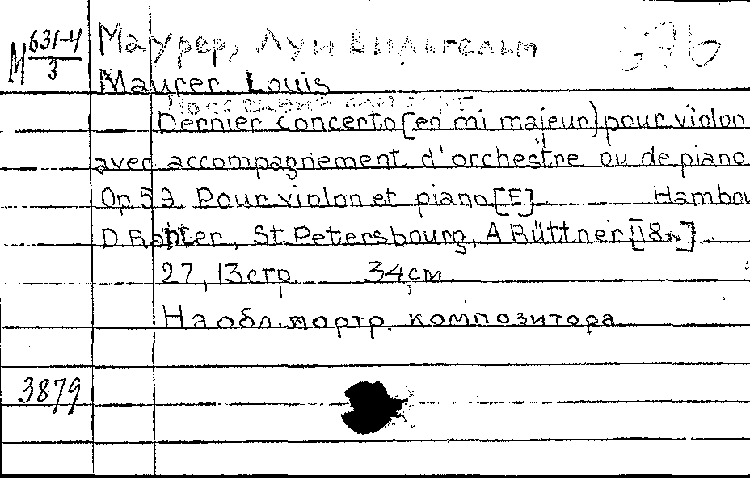 M 631-4/3
Маурер, Луи Вильгельм
Maurer Louis
Dernier concerto [en mi majeur] pour violon
avec accompagnement d'orchestre ou de piano
Op. 59. Pour violon et piano [E] Hambou
D Rahter, St. Petersbourg, A Büttner [18
27, 13 стр 34 см
На обл. портр. композитора
3879